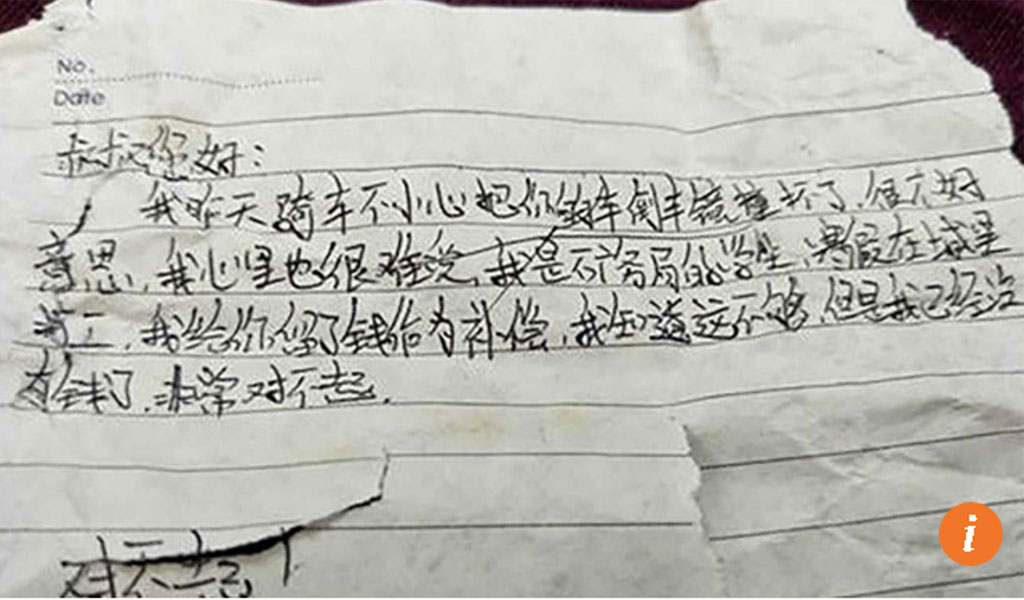 No.
Date
叔叔您好:
我昨天骑车不小心把你的车倒车镜撞坏了,很不好
意思,我心里也很难受,我是的学生,寒假在城里
工,我给你留了钱作为补偿,我知道这不够,但是我已经没
有钱了,非常对不起.
对不起!
i